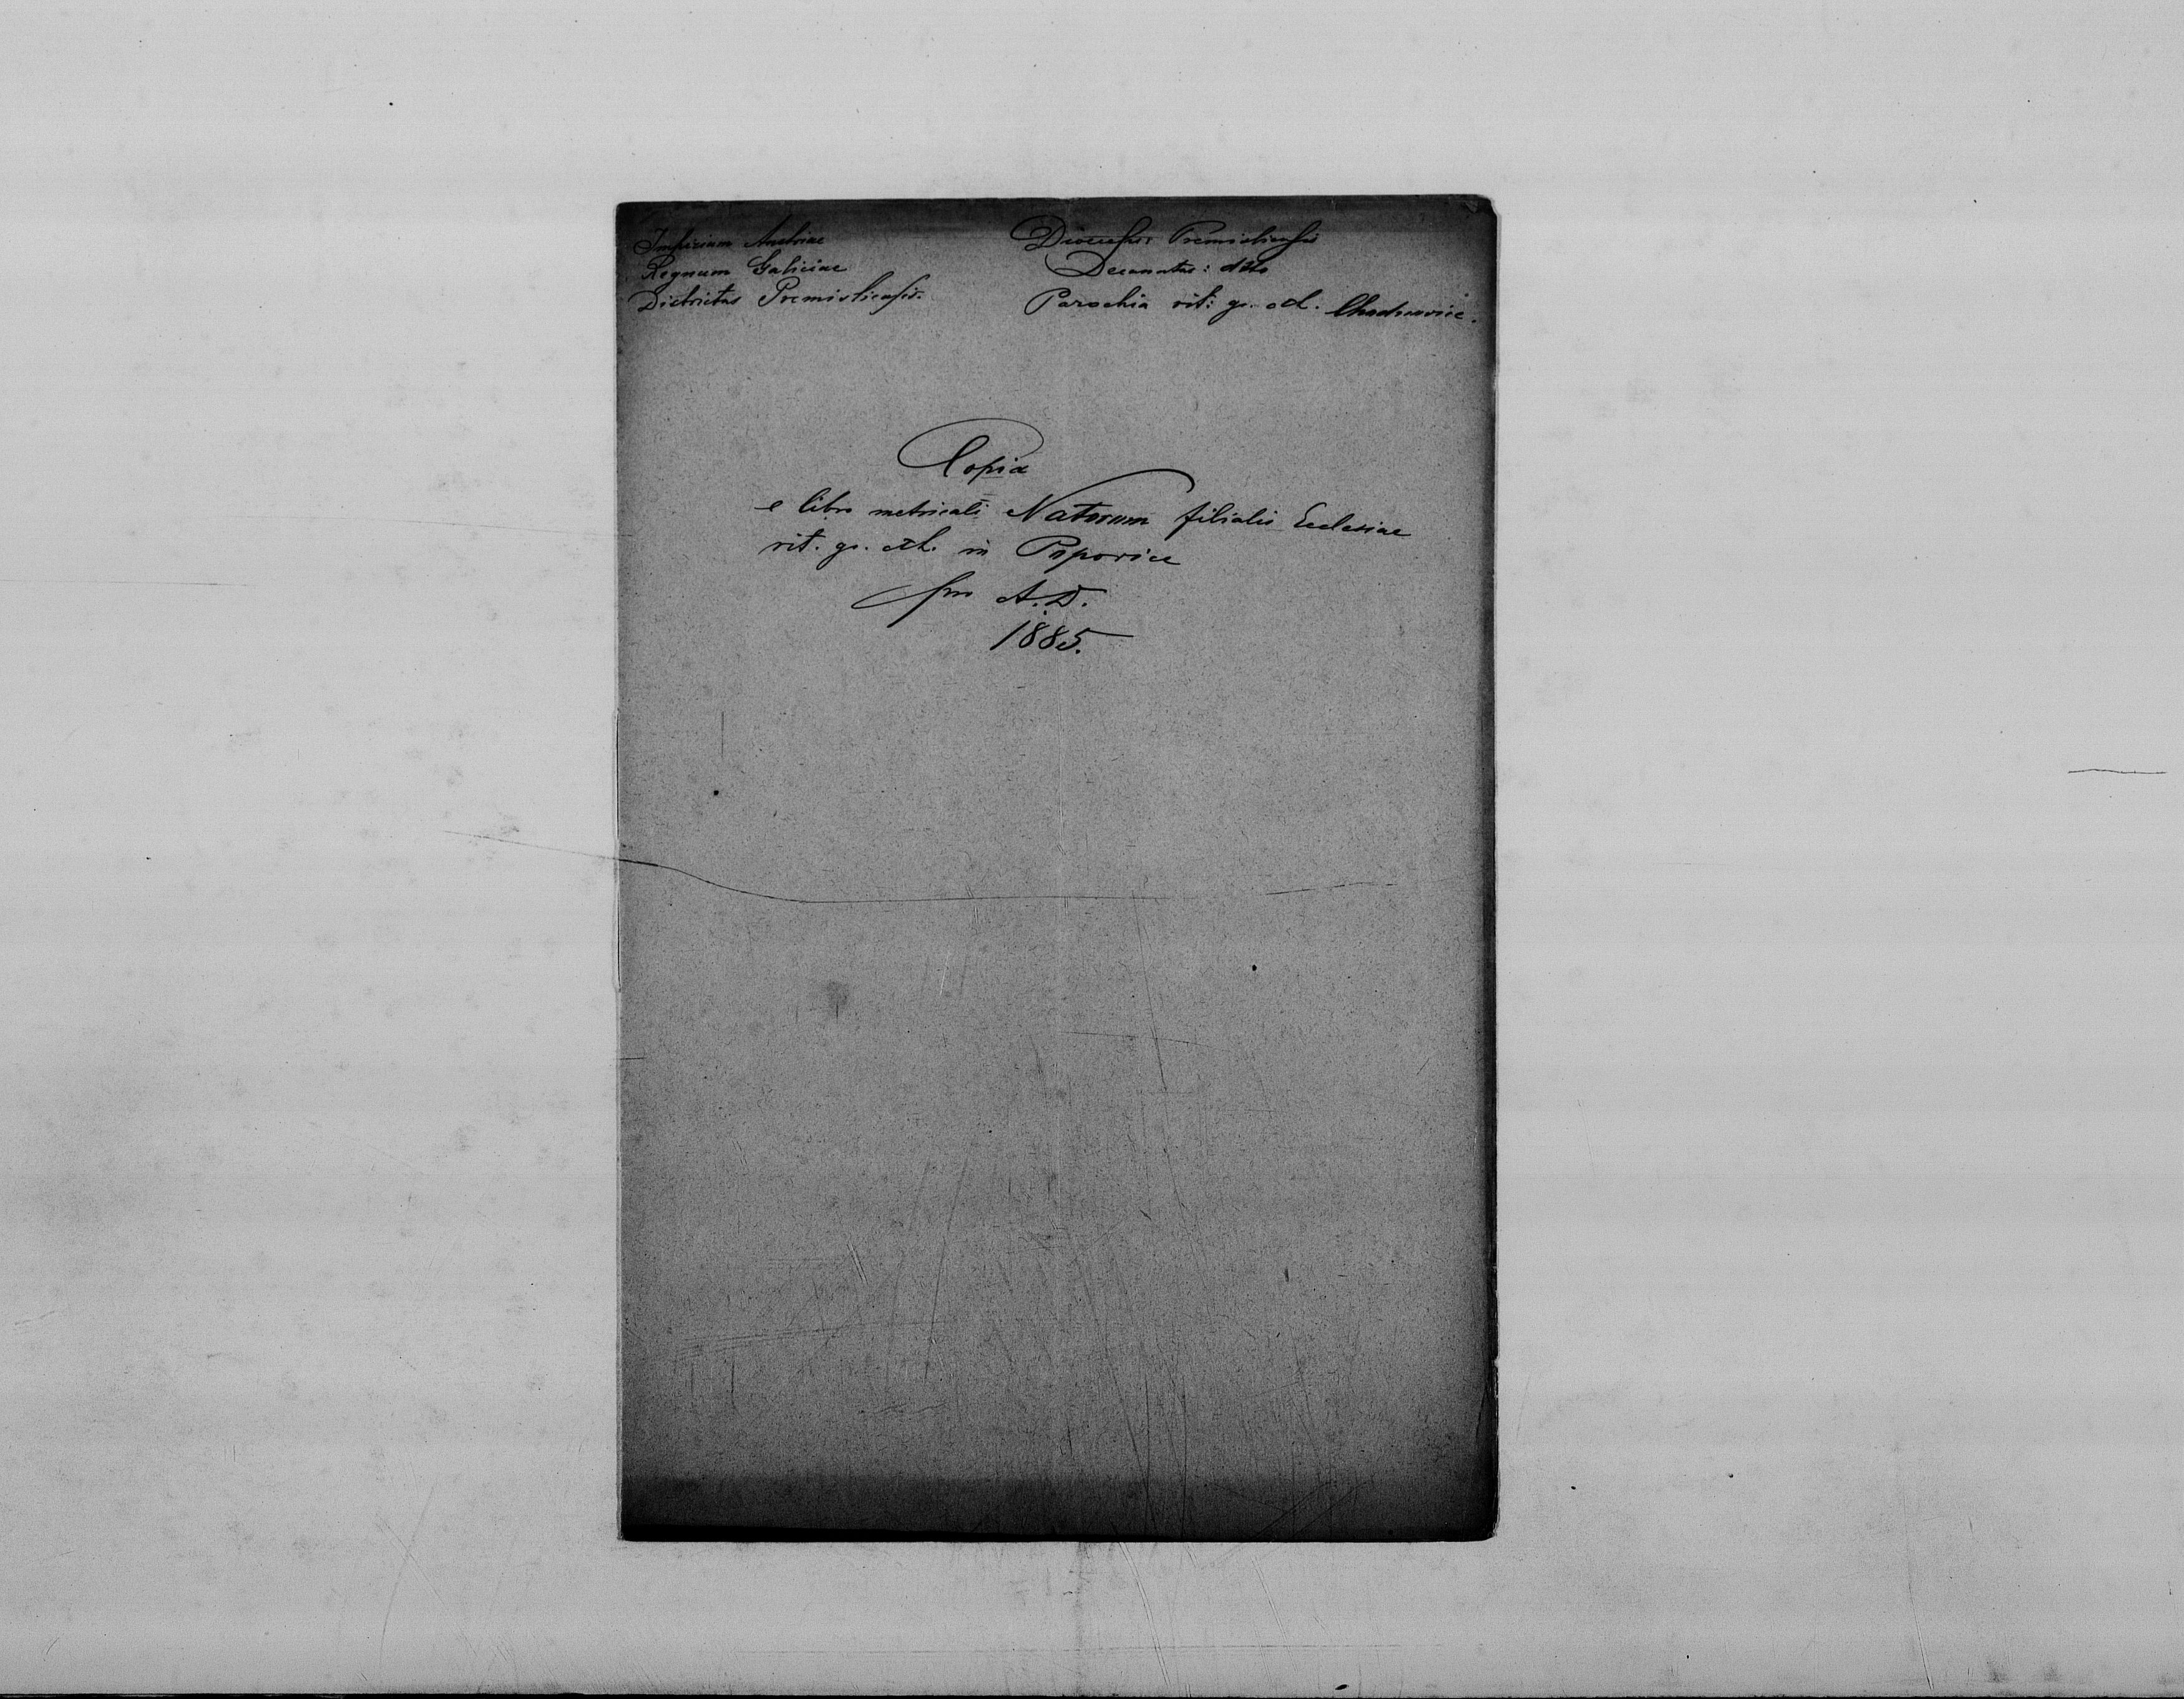 Imperium Austriae
Regnum Galiciae
Districtus Premisliensis.
Dioecesis: Premisliensis
Decanatus: ditto
Parochia rit: gr. cath. Chodnovice.
Copia
e libro metricali Natorum filialis Ecclesiae
rit. gr. cath. in Popovice
pro A.D.
1885.